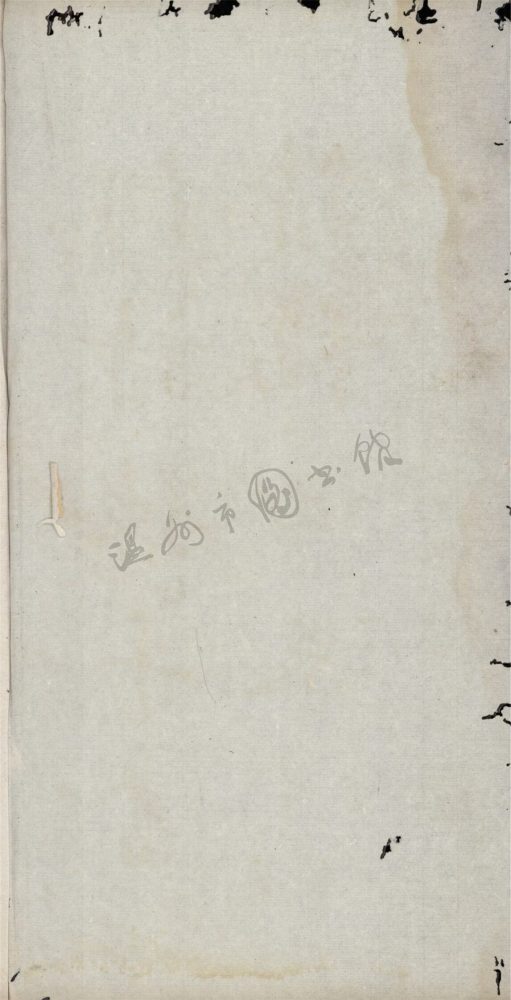 温州市图书馆